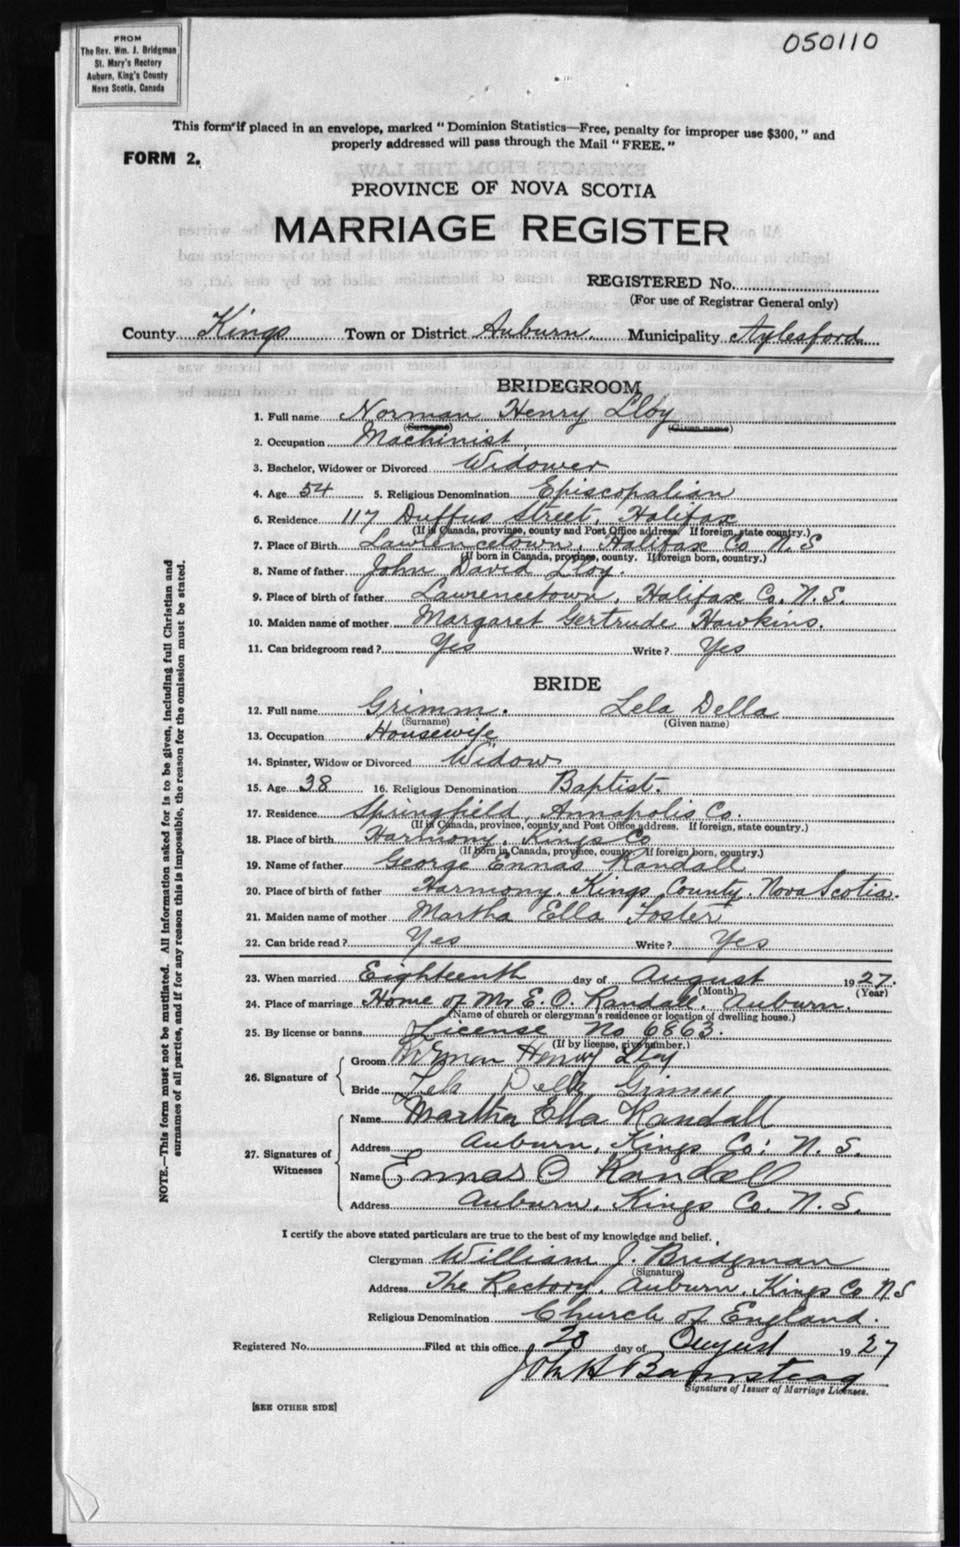 FROM
The Rev. Wm. J. Bridgman
St. Mary's Rectory
Auburn, King's County
Nova Scotia, Canada
050110
This form if placed in an envelope, marked "Dominion Statistics—Free, penalty for improper use $300," and
properly addressed will pass through the Mail "FREE."
FORM 2.
PROVINCE OF NOVA SCOTIA
MARRIAGE REGISTER
REGISTERED No.
(For use of Registrar General only)
County Kings Town or District Auburn Municipality Aylesford
NOTE.—This form must not be mutilated. All information asked for is to be given, including full Christian and
surnames of all parties, and if for any reason this is impossible, the reason for the omission must be stated.
BRIDEGROOM
1. Full name Norman Henry Lloy
(Surname) (Given name)
2. Occupation Machinist
3. Bachelor, Widower or Divorced Widower
4. Age 54 5. Religious Denomination Episcopalian
6. Residence 117 Duffus Street, Halifax
(If in Canada, province, county and Post Office address. If foreign, state country.)
7. Place of Birth Lawrencetown, Halifax Co N.S
(If born in Canada, province, county. If foreign born, country.)
8. Name of father John David Lloy.
9. Place of birth of father Lawrencetown, Halifax Co. N.S.
10. Maiden name of mother Margaret Gertrude Hawkins.
11. Can bridegroom read? Yes Write? Yes
BRIDE
12. Full name Grimm. Lela Della
(Surname) (Given name)
13. Occupation Housewife
14. Spinster, Widow or Divorced Widow
15. Age 38 16. Religious Denomination Baptist.
17. Residence Springfield, Annapolis Co.
(If in Canada, province, county and Post Office address. If foreign, state country.)
18. Place of birth Harmony, Kings Co
(If born in Canada, province, county. If foreign born, country.)
19. Name of father George Ennas Randall
20. Place of birth of father Harmony, Kings County. Nova Scotia.
21. Maiden name of mother Martha Ella Foster
22. Can bride read? Yes Write? Yes
23. When married Eighteenth day of August 1927.
(Month) (Year)
24. Place of marriage Home of Mr E. O. Randall, Auburn.
(Name of church or clergyman's residence or location of dwelling house.)
25. By license or banns License No 6863.
(If by license, give number.)
26. Signature of Groom Norman Henry Lloy
Bride Lela Della Grimm
27. Signatures of Witnesses Name Martha Ella Randall
Address Auburn, Kings Co: N. S.
Name Ennas O Randall
Address Auburn, Kings Co. N. S.
I certify the above stated particulars are true to the best of my knowledge and belief.
Clergyman William J. Bridgman
(Signature)
Address The Rectory, Auburn, Kings Co N S
Religious Denomination Church of England.
Registered No. Filed at this office 20 day of August 1927
John H
Signature of Issuer of Marriage Licenses.
[SEE OTHER SIDE]